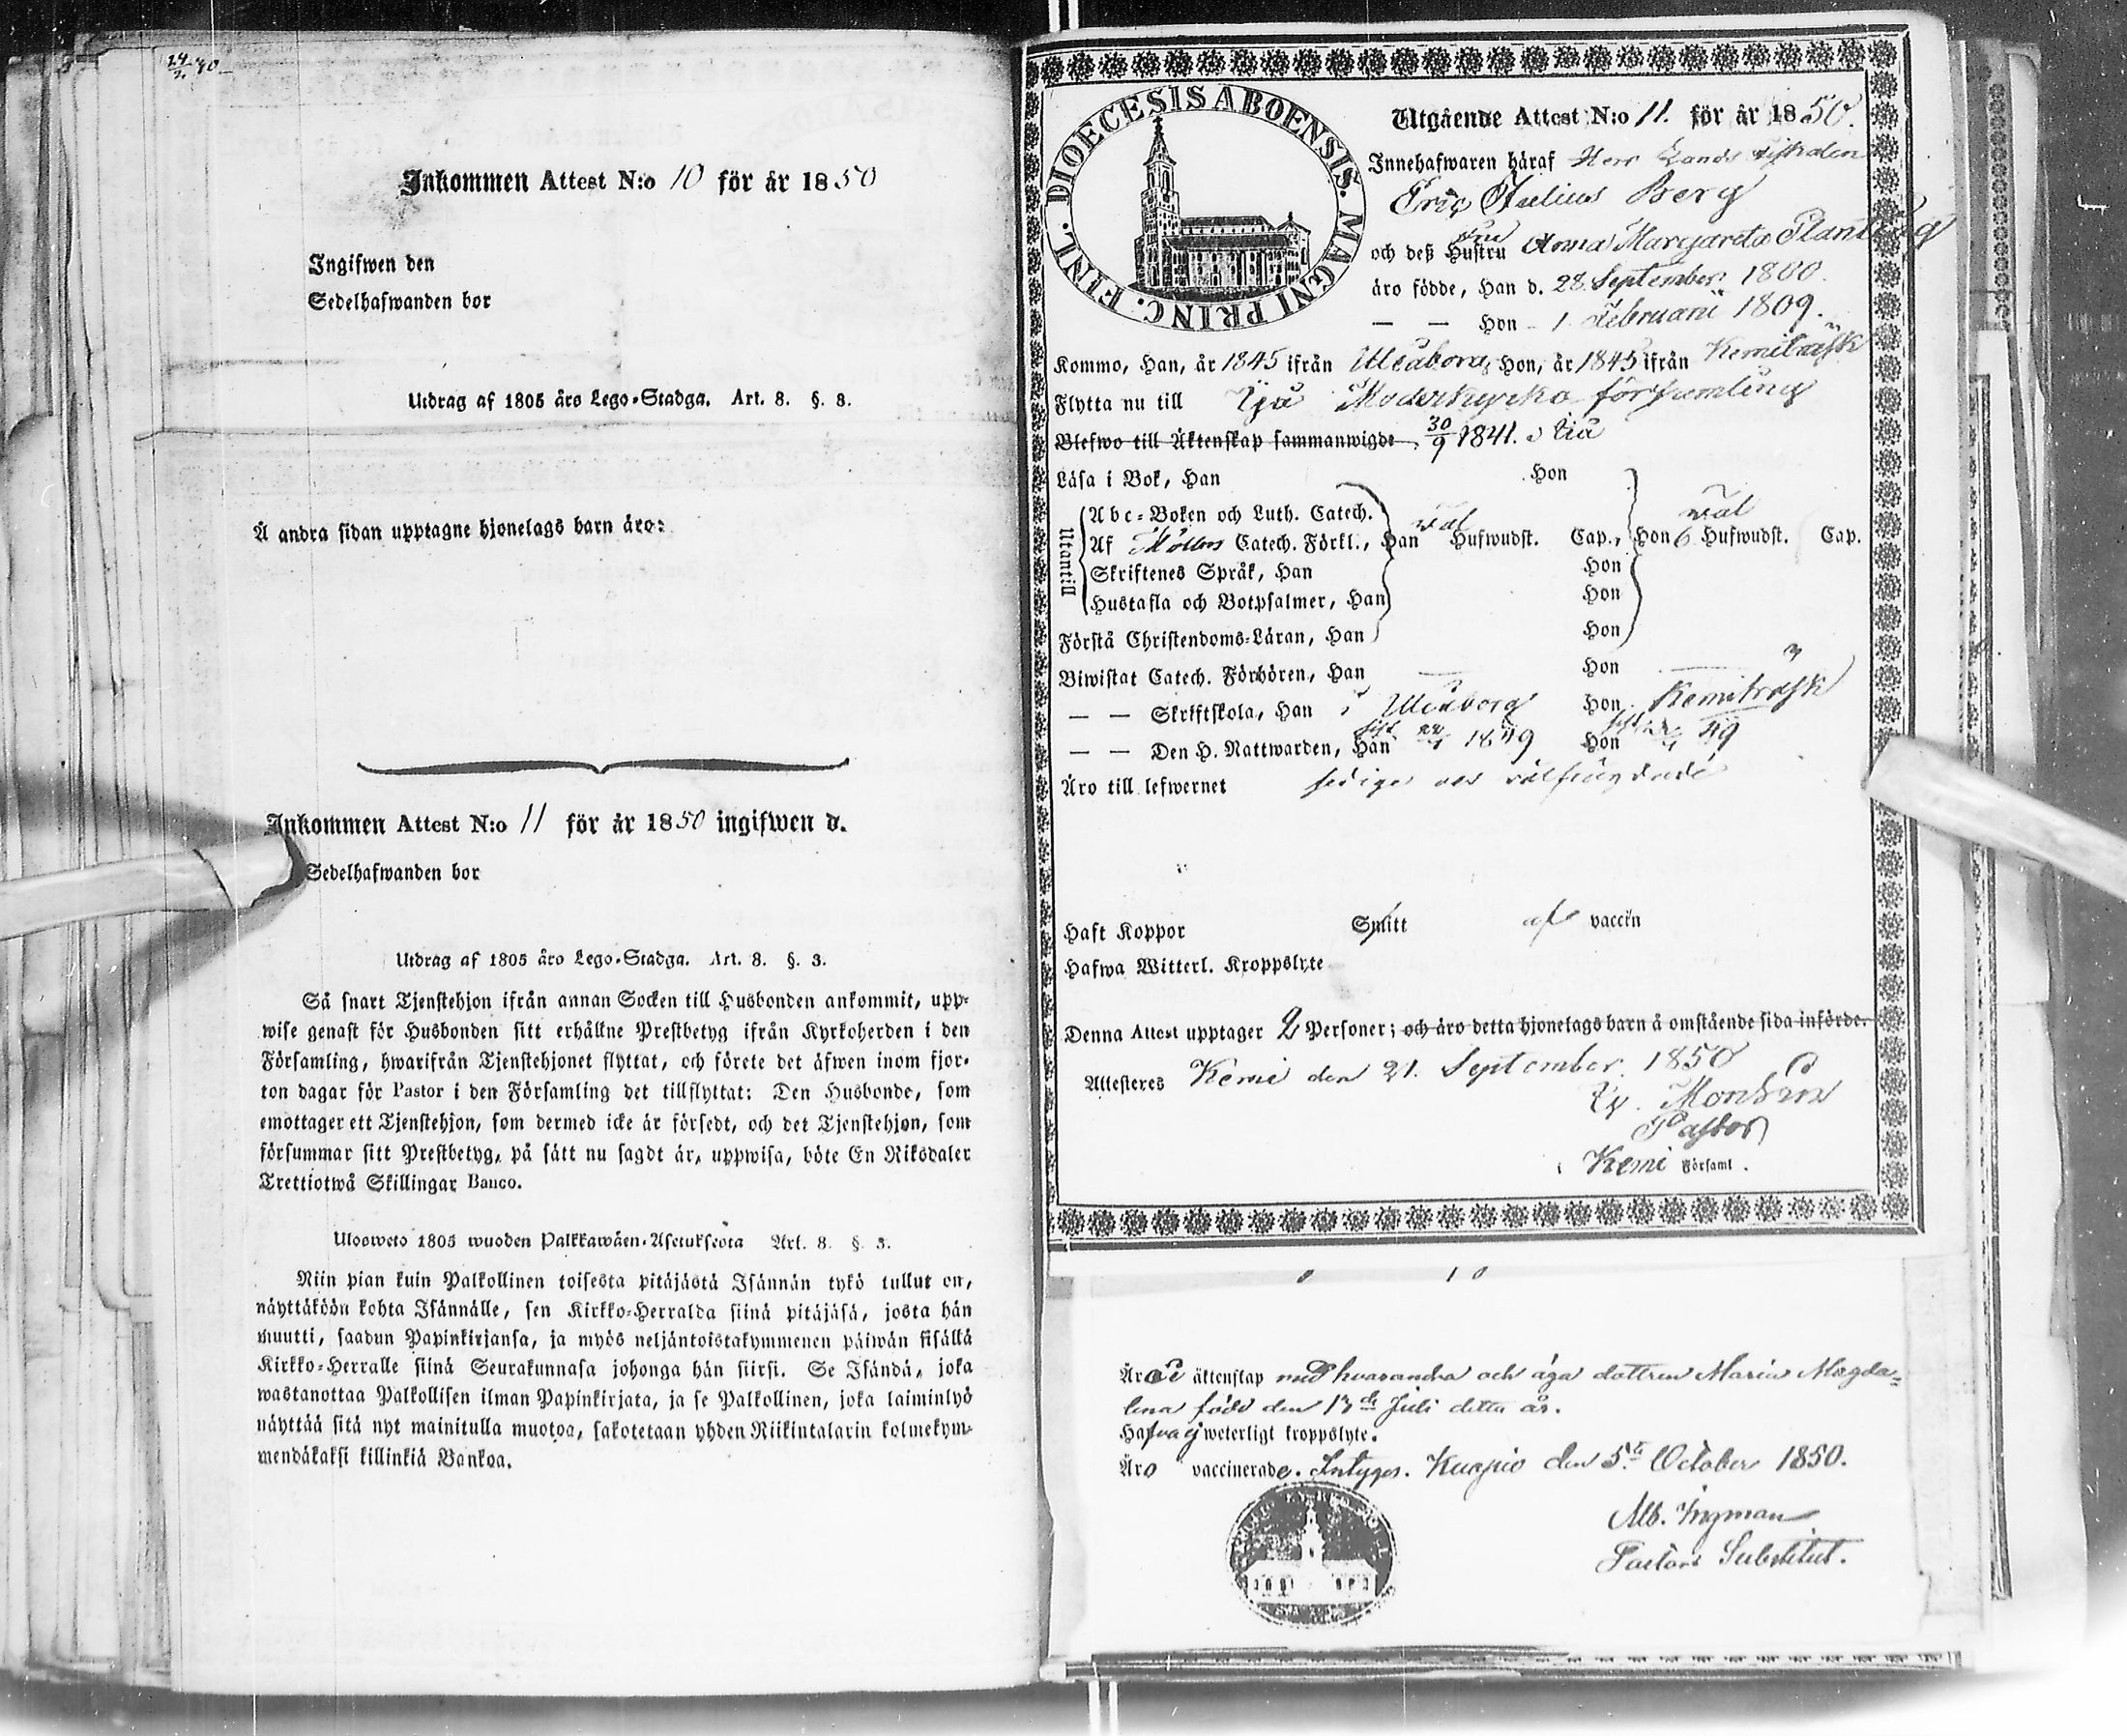 24/2 40
Inkommen Attest N:o 10 för år 1850
Ingifwen den
Sedelhafwanden bor
Utdrag af 1805 års Lego-Stadga. Art. 8. §. 8.
Å andra sidan upptagne hjonelags barn äro:
Inkommen Attest N:o 11 för år 1850 ingifwen d.
Sedelhafwanden bor
Utdrag af 1805 års Lego-Stadga. Art. 8. §. 3.
Så snart Tjenstehjon ifrån annan Socken till Husbonden ankommit, upp-
wise genast för Husbonden sitt erhållne Prestbetyg ifrån Kyrkoherden i den
Församling, hwarifrån Tjenstehjonet flyttat, och förete det äfwen inom fjor-
ton dagar för Pastor i den Församling det tillflyttat: Den Husbonde, som
emottager ett Tjenstehjon, som dermed icke är försedt, och det Tjenstehjon, som
försummar sitt Prestbetyg, på sätt nu sagdt är, uppwisa, böte En Riksdaler
Trettiotwå Skillingar Banco.
Uloswets 1805 wuoden Palkkawäen-Asetuksesta Art. 8. §. 3.
Niin pian kuin Palkollinen toisesta pitäjästä Isännän tykö tullut on,
näyttäköön kohta Isännälle, sen Kirkko-Herralda siinä pitäjäsä, josta hän
muutti, saadun Papinkirjansa, ja myös neljäntoistakymmenen päiwän sisällä
Kirkko-Herralle siinä Seurakunnasa johonga hän siirsi. Se Isändä, joka
wastanottaa Palkollisen ilman Papinkirjata, ja se Palkollinen, joka laiminlyö
näyttää sitä nyt mainitulla muotoa, sakotetaan yhden Riikintalarin kolmekym-
mendäkaksi killinkiä Bankoa.
DIOECESIS ABOENSIS. MAGNI PRINC. FINL.
Utgående Attest N:o 11. för år 1850.
Innehafwaren häraf Herr Lands fiskalen
Eric Julius Berg
och deß Hustru Fru Anna Margareta Planting
äro födde, Han d. 28 September 1800.
— — Hon - 1 Februarii 1809.
Kommo, Han, år 1845 ifrån Uleåborg, Hon, år 1845 ifrån Kemiträsk
Flytta nu till Ijå Moderkyrko församling
Blefwo till Äktenskap sammanwigde 30/9 1841.
Läsa i Bok, Han Hon
Utantill
Abc-Boken och Luth. Catech.
Af Möllers Catech. Förkl., Han wäl Hufwudst. Cap., Hon wäl Hufwudst. Cap.
Skriftenes Språk, Han Hon
Hustafla och Botpsalmer, Han Hon
Förstå Christendoms-Läran, Han Hon
Biwistat Catech. Förhören, Han — Hon —
— — Skriftskola, Han i Uleåborg Hon i Kemiträsk
— — Den H. Nattwarden, Han sist 1849 Hon sist 49
Äro till lefwernet sedige och välfrägdade
Haft Koppor Smitt af vaccin
Hafwa Witterl. Kroppslyte
Denna Attest upptager 2 Personer; och äro detta hjonelags barn å omstående sida införde.
Attesteres Kemi den 21. September. 1850
Monsén
Pastor
i Kemi Församl.
Äro i äktenskap med hvarandra och äga dottren Maria Magda=
lena född den 13de Juli detta år.
Hafva ej weterligt kroppslyte.
Äro vaccinerade. Intygas. Kuopio den 5te October 1850.
Alb. Ingman
Pastors Substitut.